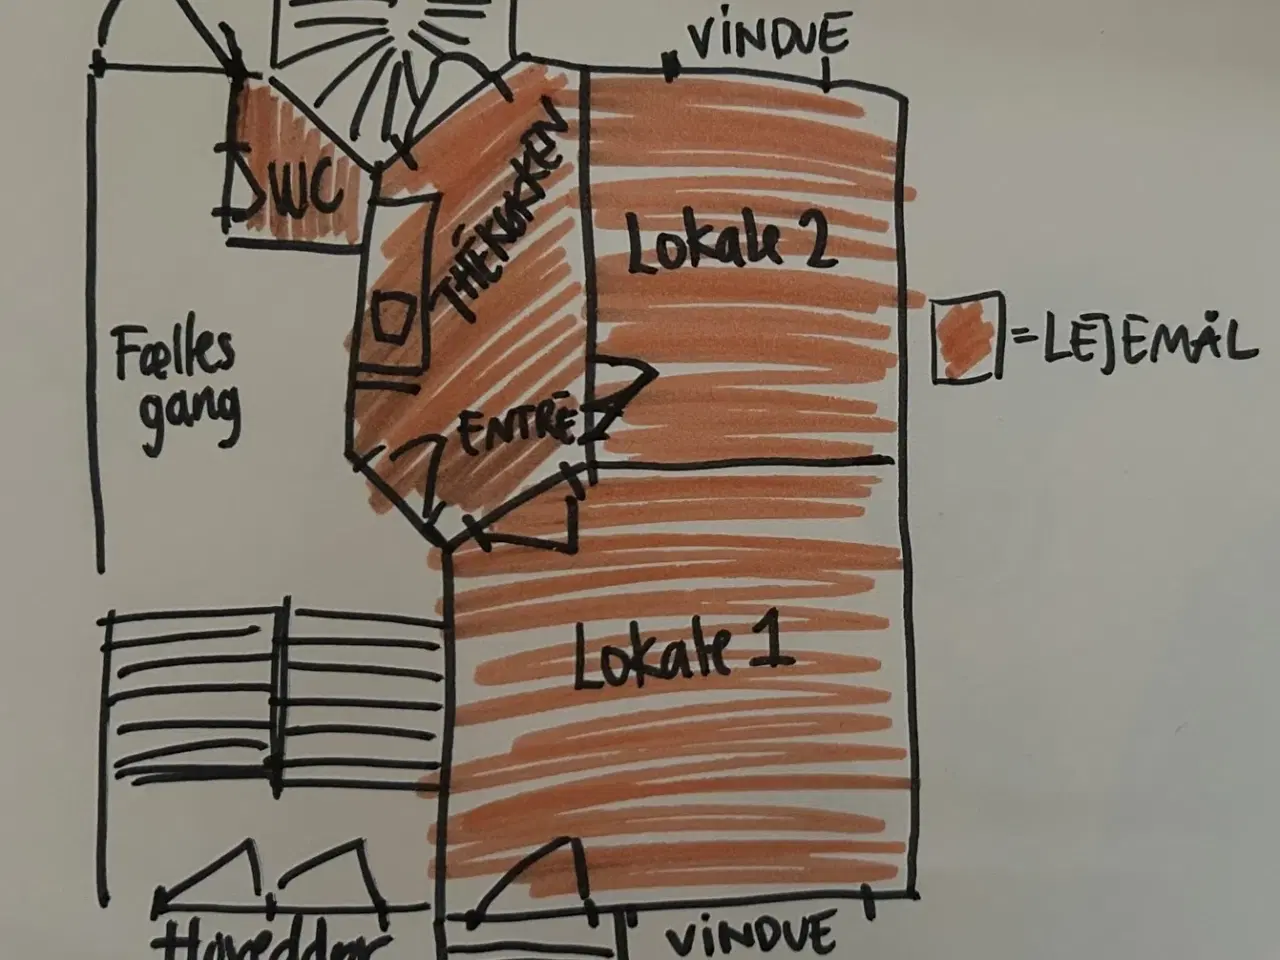 VINDUE
WC
THÉKØKKEN
Lokale 2
= LEJEMÅL
Fælles
gang
ENTRÉ
Lokale 1
Hoveddør
VINDUE